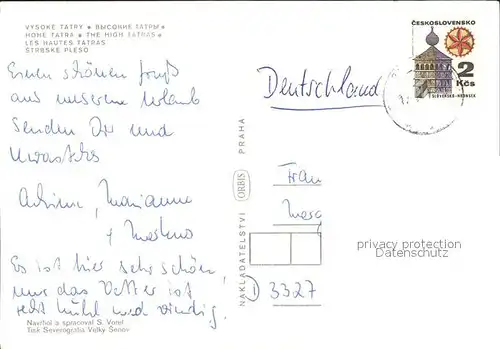 VYSOKÉ TATRY • ВЫСОКИЕ ТАТРЫ •
HOHE TATRA • THE HIGH TATRAS •
LES HAUTES TATRAS
ŠTRBSKÉ PLESO
Einen schönen Gruß
aus unserem Urlaub
senden Dir und
Achim, Marianne
+ Markus
Es ist hier sehr schön,
nur das Wetter ist
recht kühl und windig!
Navrhol a spracoval S. Votel
Tisk Severografia Velký Šenov
NAKLADATELSTVÍ ORBIS PRAHA
ČESKOSLOVENSKO
2
Kčs
SLOVENSKO-HRONSEK
Deutschland
Frau
privacy protection
Datenschutz
3327